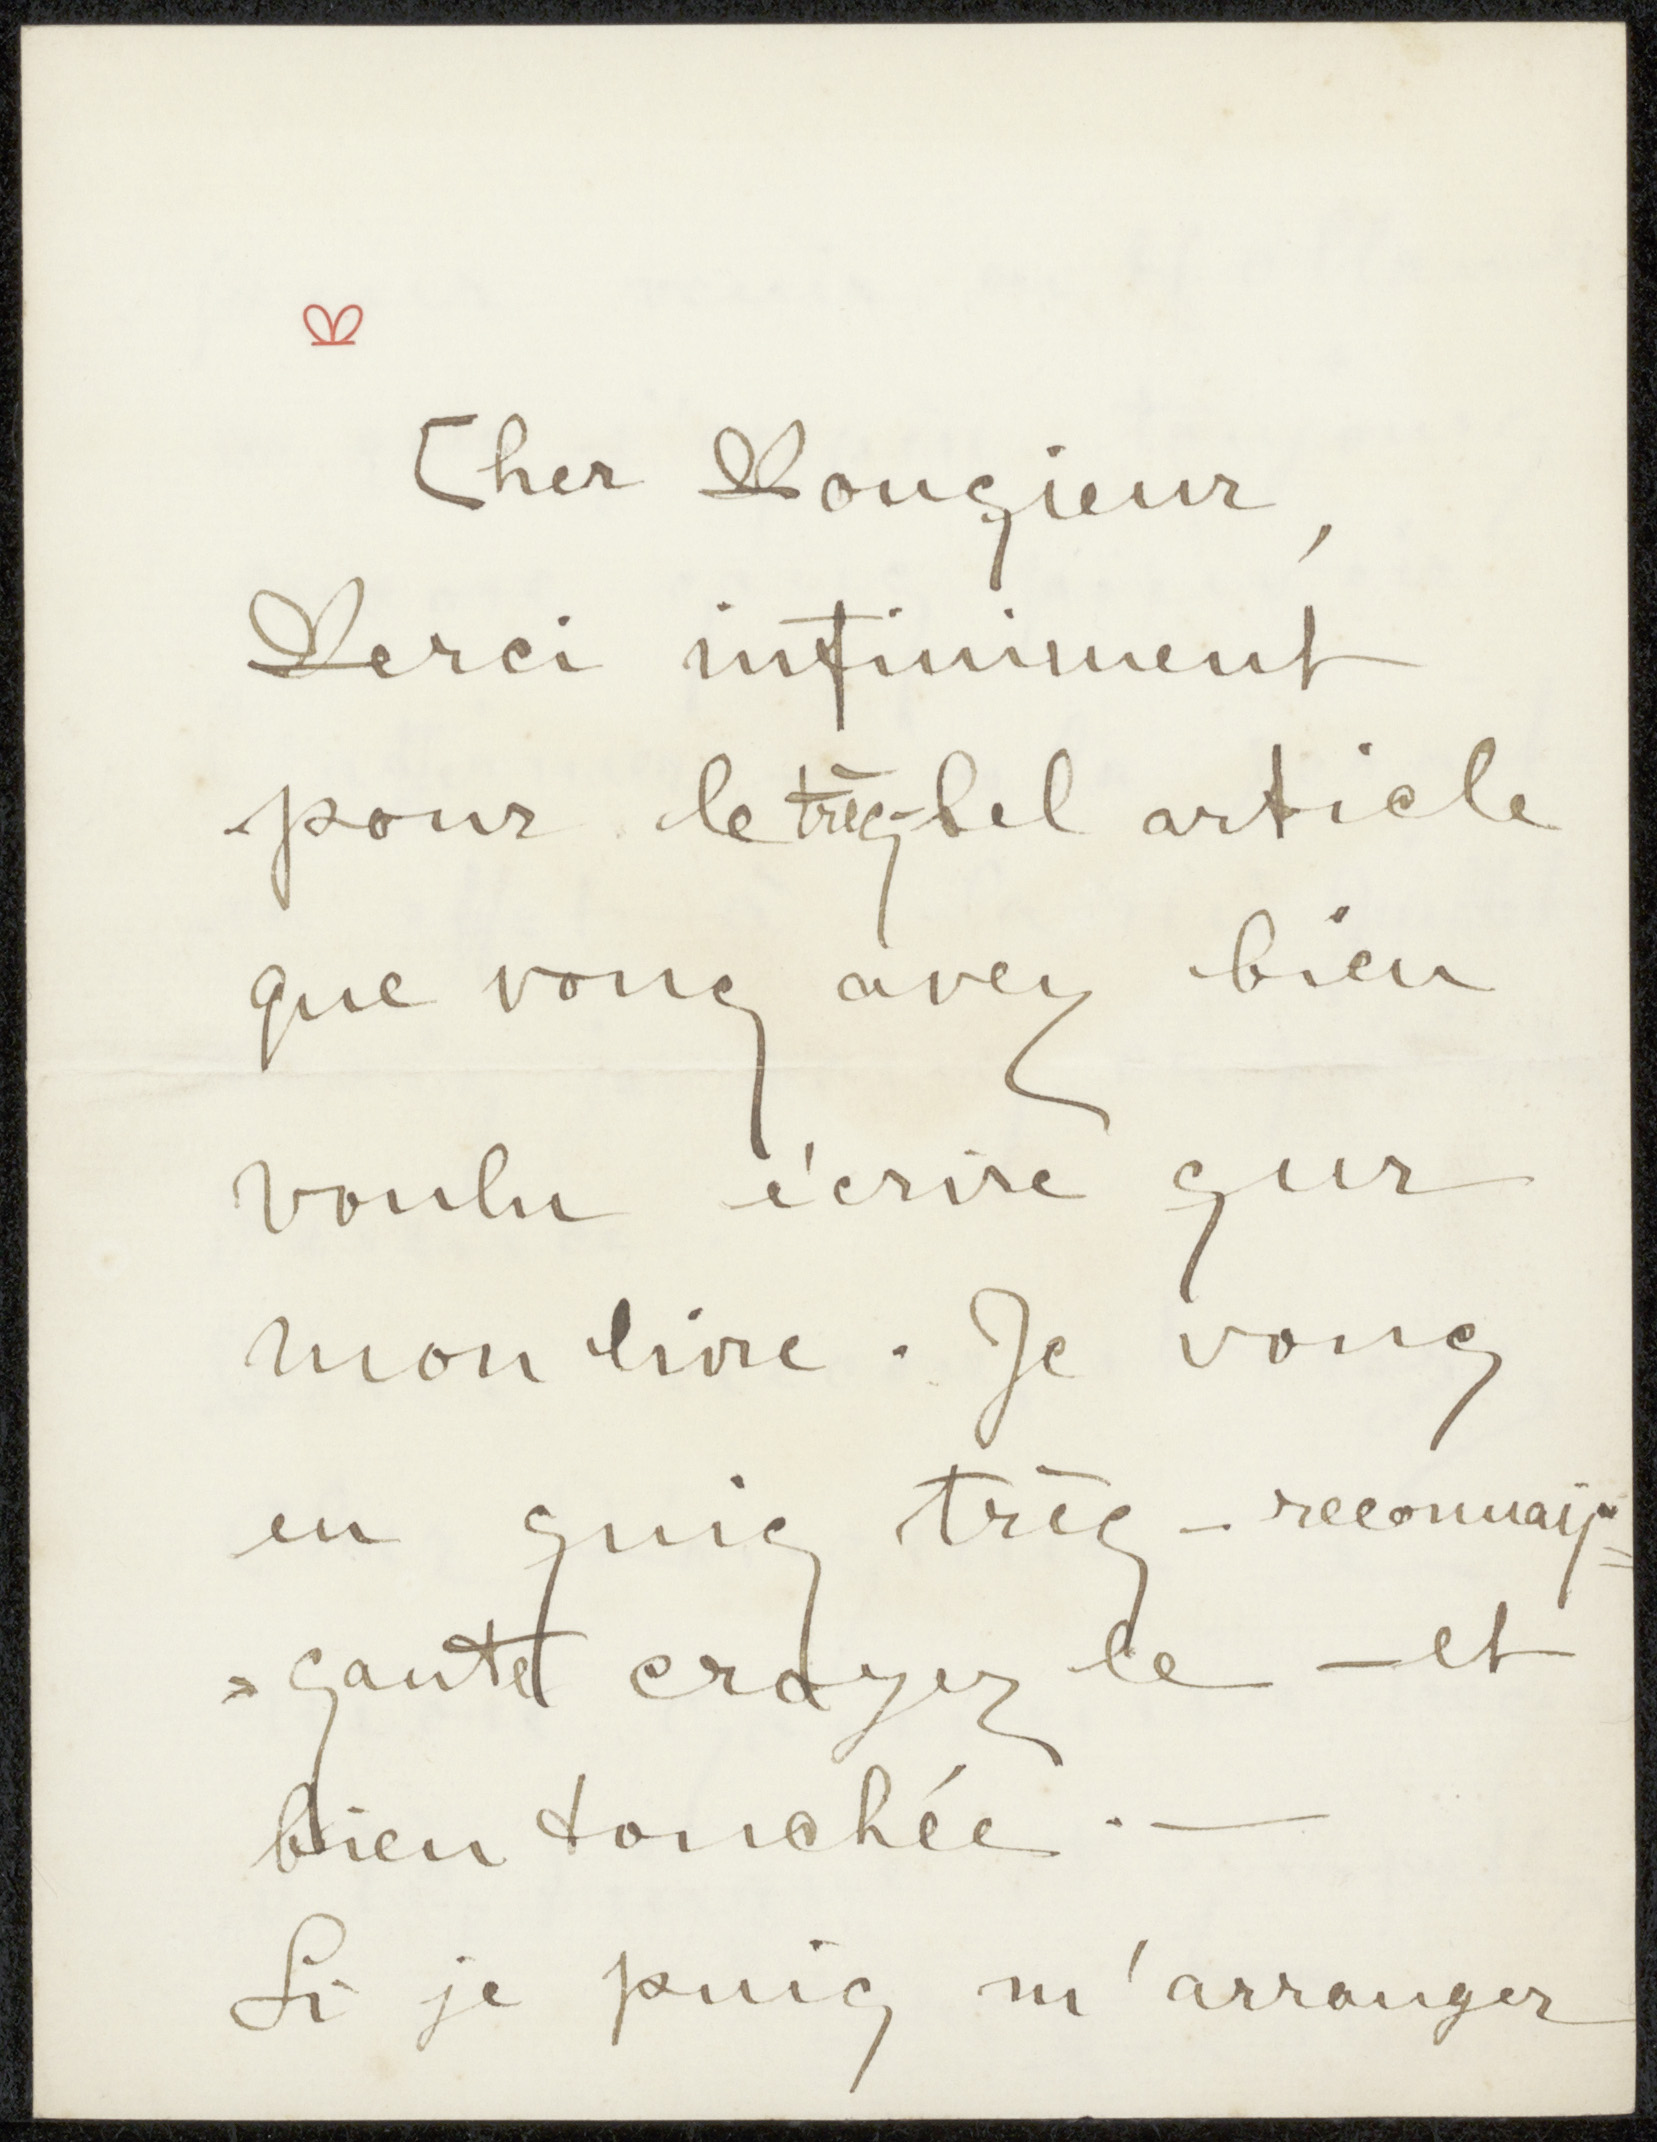 Cher Monsieur,
Merci infiniment
pour le très-bel article
que vous avez bien
voulu écrire sur
mon livre. Je vous
en suis très-reconnais=
=sante croyez le - et
bien touchée. —
Si je puis m'arranger